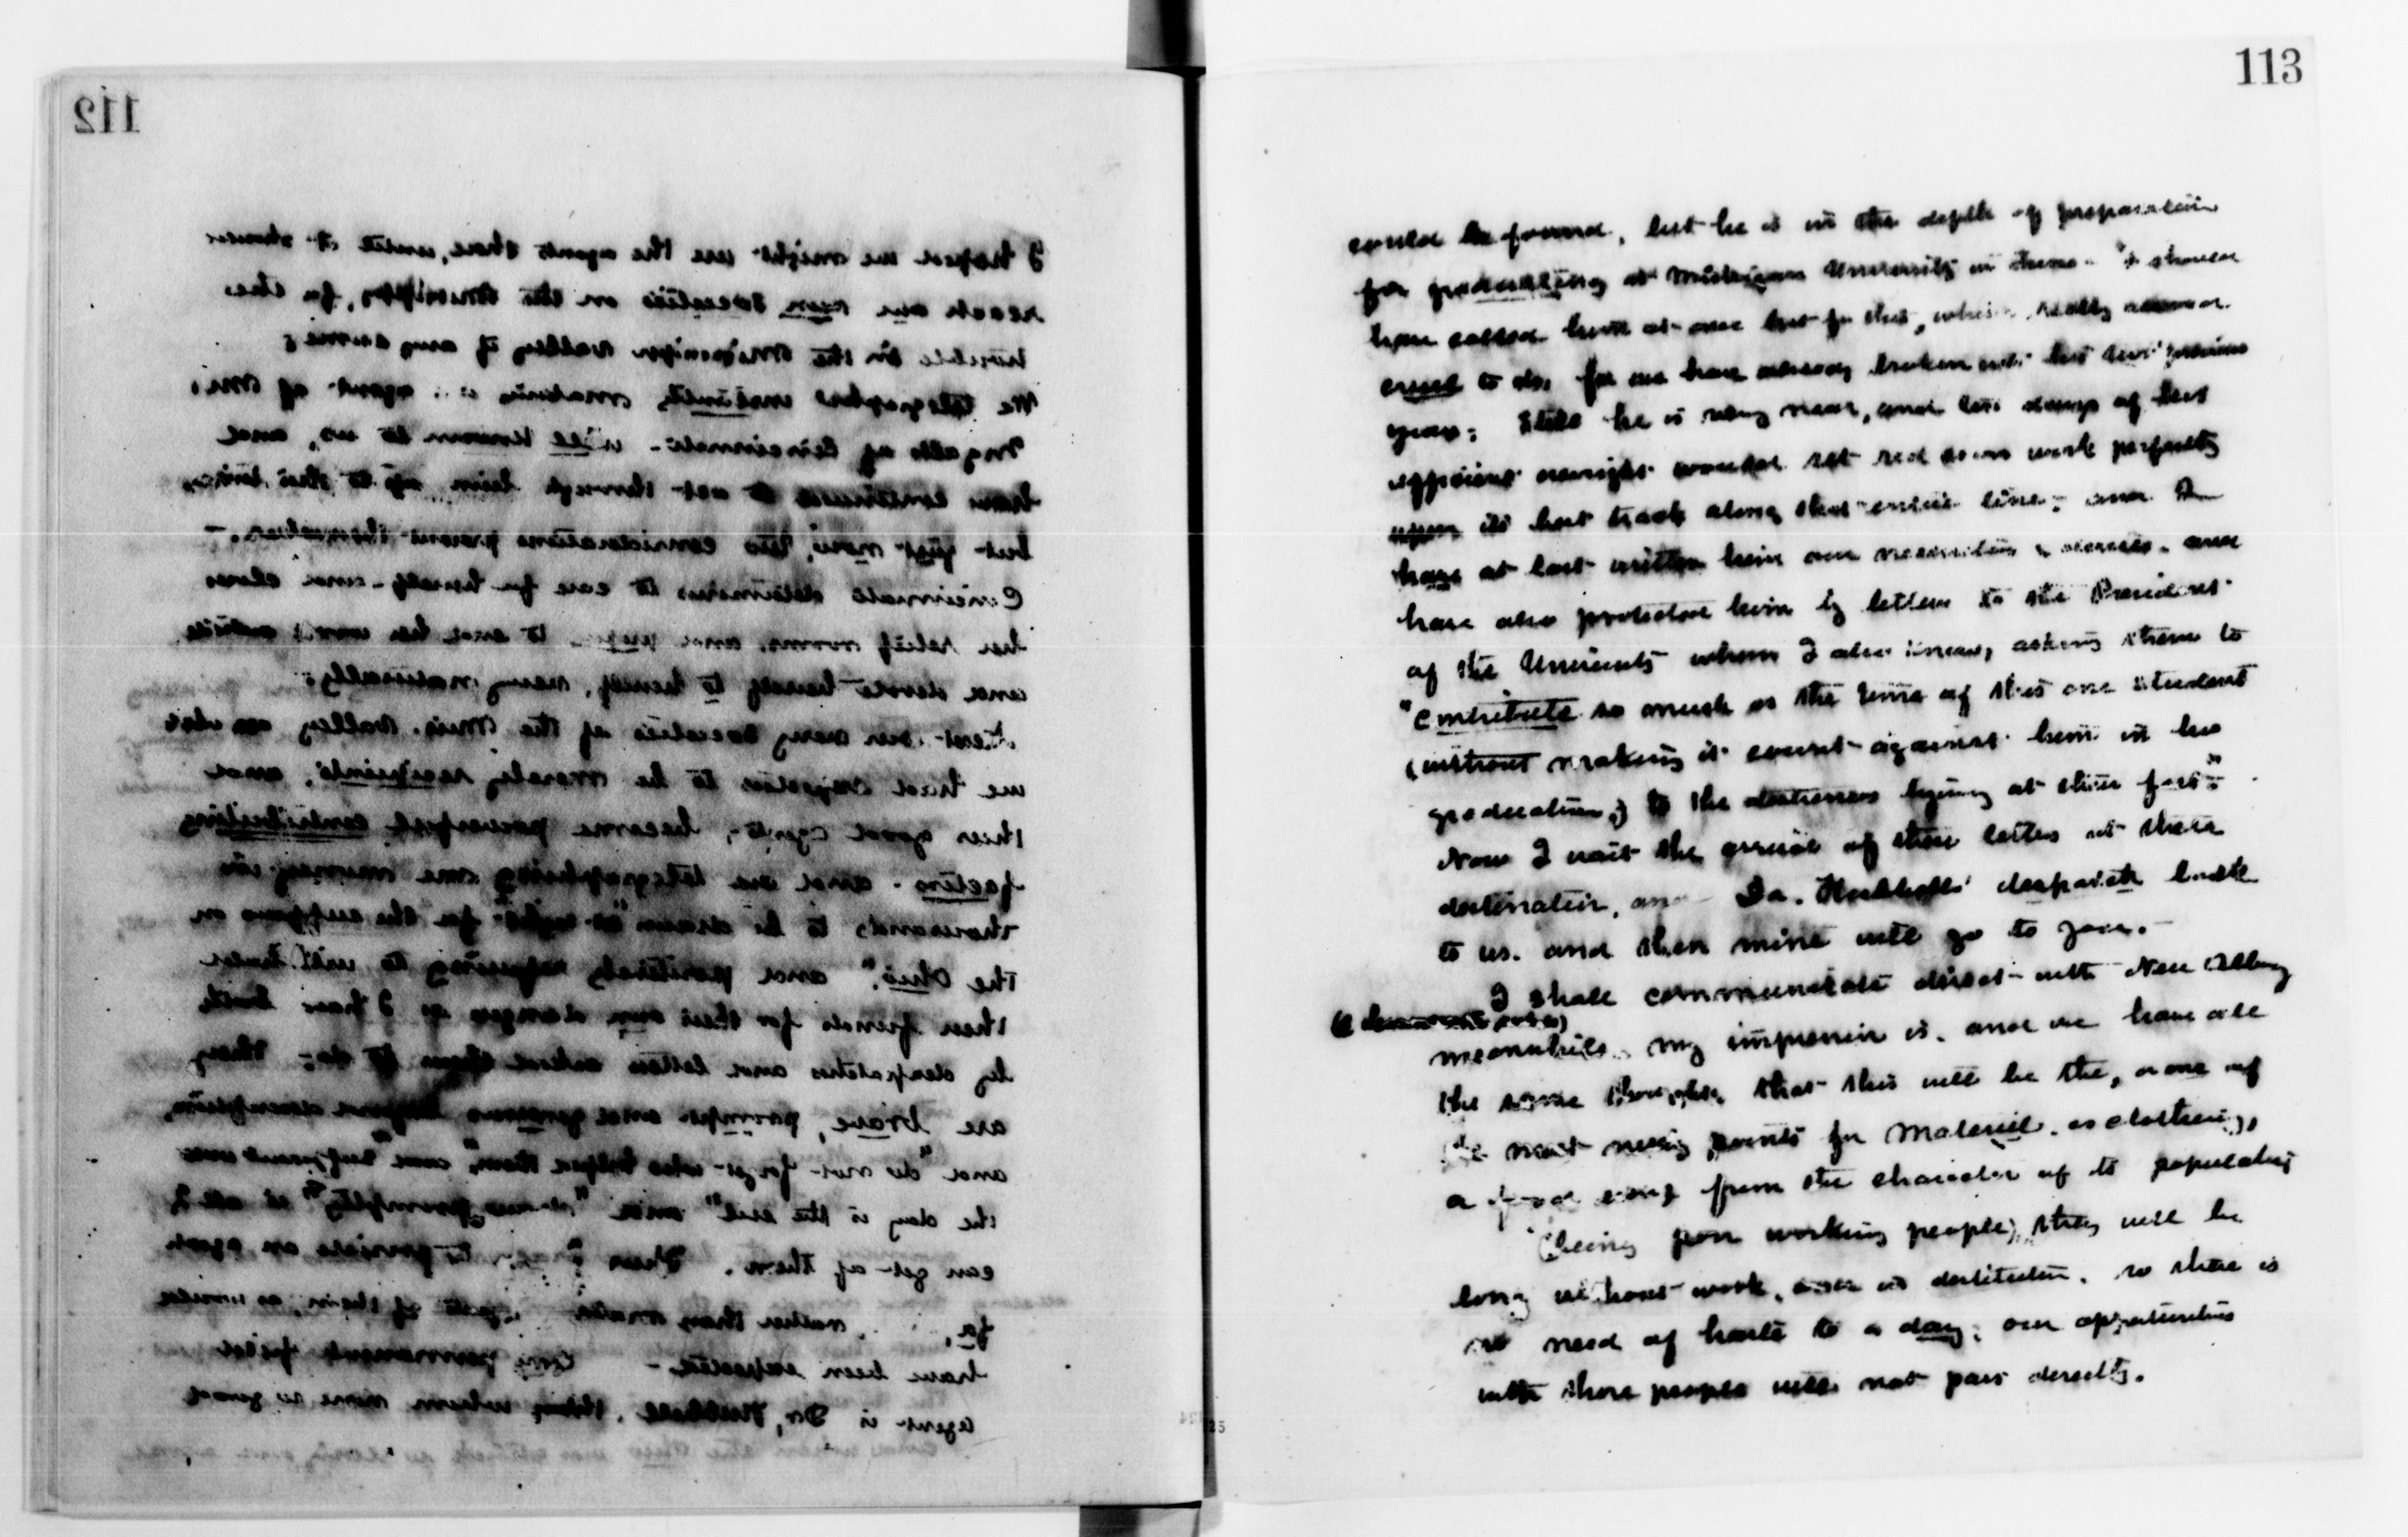 112
I hoped we might use the agents there, until it should
reach our own societies on the Mississippi, for the
trouble in the Mississippi valley if any comes;
We telegraphed instantly making agent of Mr.
of Cincinnati - well known to us, and
have continued to act through him up to this time,
but just now, two considerations prevent
Cincinnati determines to care for herself - and closes
her relief rooms, and to end her work outside
and devote herself to herself, very naturally;
our many societies of the Miss. valley on whom
we had expected to be merely recipients, and
their good agents, become powerful contributing
factors - and are telegraphing me money in
thousands to be drawn "at sight" for the sufferers on
the Ohio", and positively refusing to withhold
their funds for their own dangers as I have both
by despatches and letters asked them to do - They
are brave, prompt and generous beyond description,
and "do not forget who helped them," and "sufficient unto
the day is the evil" and "draw promptly" is all I
can get of them. Then I to provide an agent
for, rather than make agents of them, as would
have been expected - Our permanent field
agent is Dr. Hubbell, than whom none so good
113
could be found, but he is in the depth of preparation
for graduating at Michigan University in June - I should
have called him at once but for this, which really seemed
cruel to do, for we have already broken into his two previous
years; Still he is very near, and two days of his
efficient oversight would set red cross work perfectly
upon its best track along that entire line; and I
have at last written him our necessities & wishes - and
have also protected him by letters to the President
of the University whom I also know, asking them to
"Contribute so much as the time of this one student
(without making it count against him in his
graduation,) to the distress lying at their feet"
Now I wait the arrival of these letters at their
destination, and Dr. Hubbell's despatch back
to us. and then mine will go to you. -
I shall communicate direct with New Albany
meanwhile. My impression is, and we have all
the same thought, that this will be the, or one of
the most needy points for material, as clothing,
a from the character of its population
(being poor working people), they will be
long without work, and in destitution, so there is
no need of haste to a day; our opportunities
with those people will not pass directly.